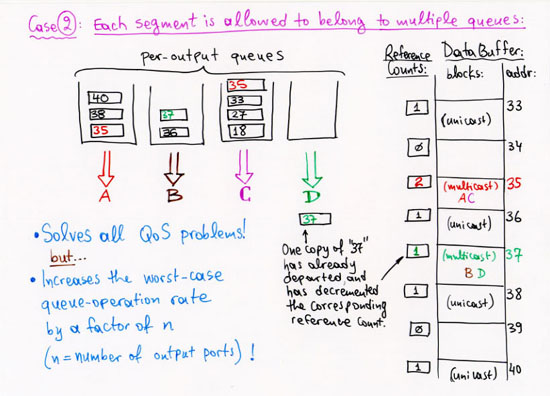 Case ②: Each segment is allowed to belong to multiple queues:
per-output queues
40
38
35
37
36
35
33
27
18
A
B
C
D
37
• Solves all QoS problems!
but...
• Increases the worst-case
queue-operation rate
by a factor of n
(n = number of output ports) !
One copy of "37"
has already
departed and
has decremented
the corresponding
reference count.
Reference
Counts:
Data Buffer:
blocks:
addr:
1
(unicast)
33
Ø
34
2
(multicast)
AC
35
1
(unicast)
36
1
(multicast)
B D
37
1
(unicast)
38
Ø
39
1
(unicast)
40